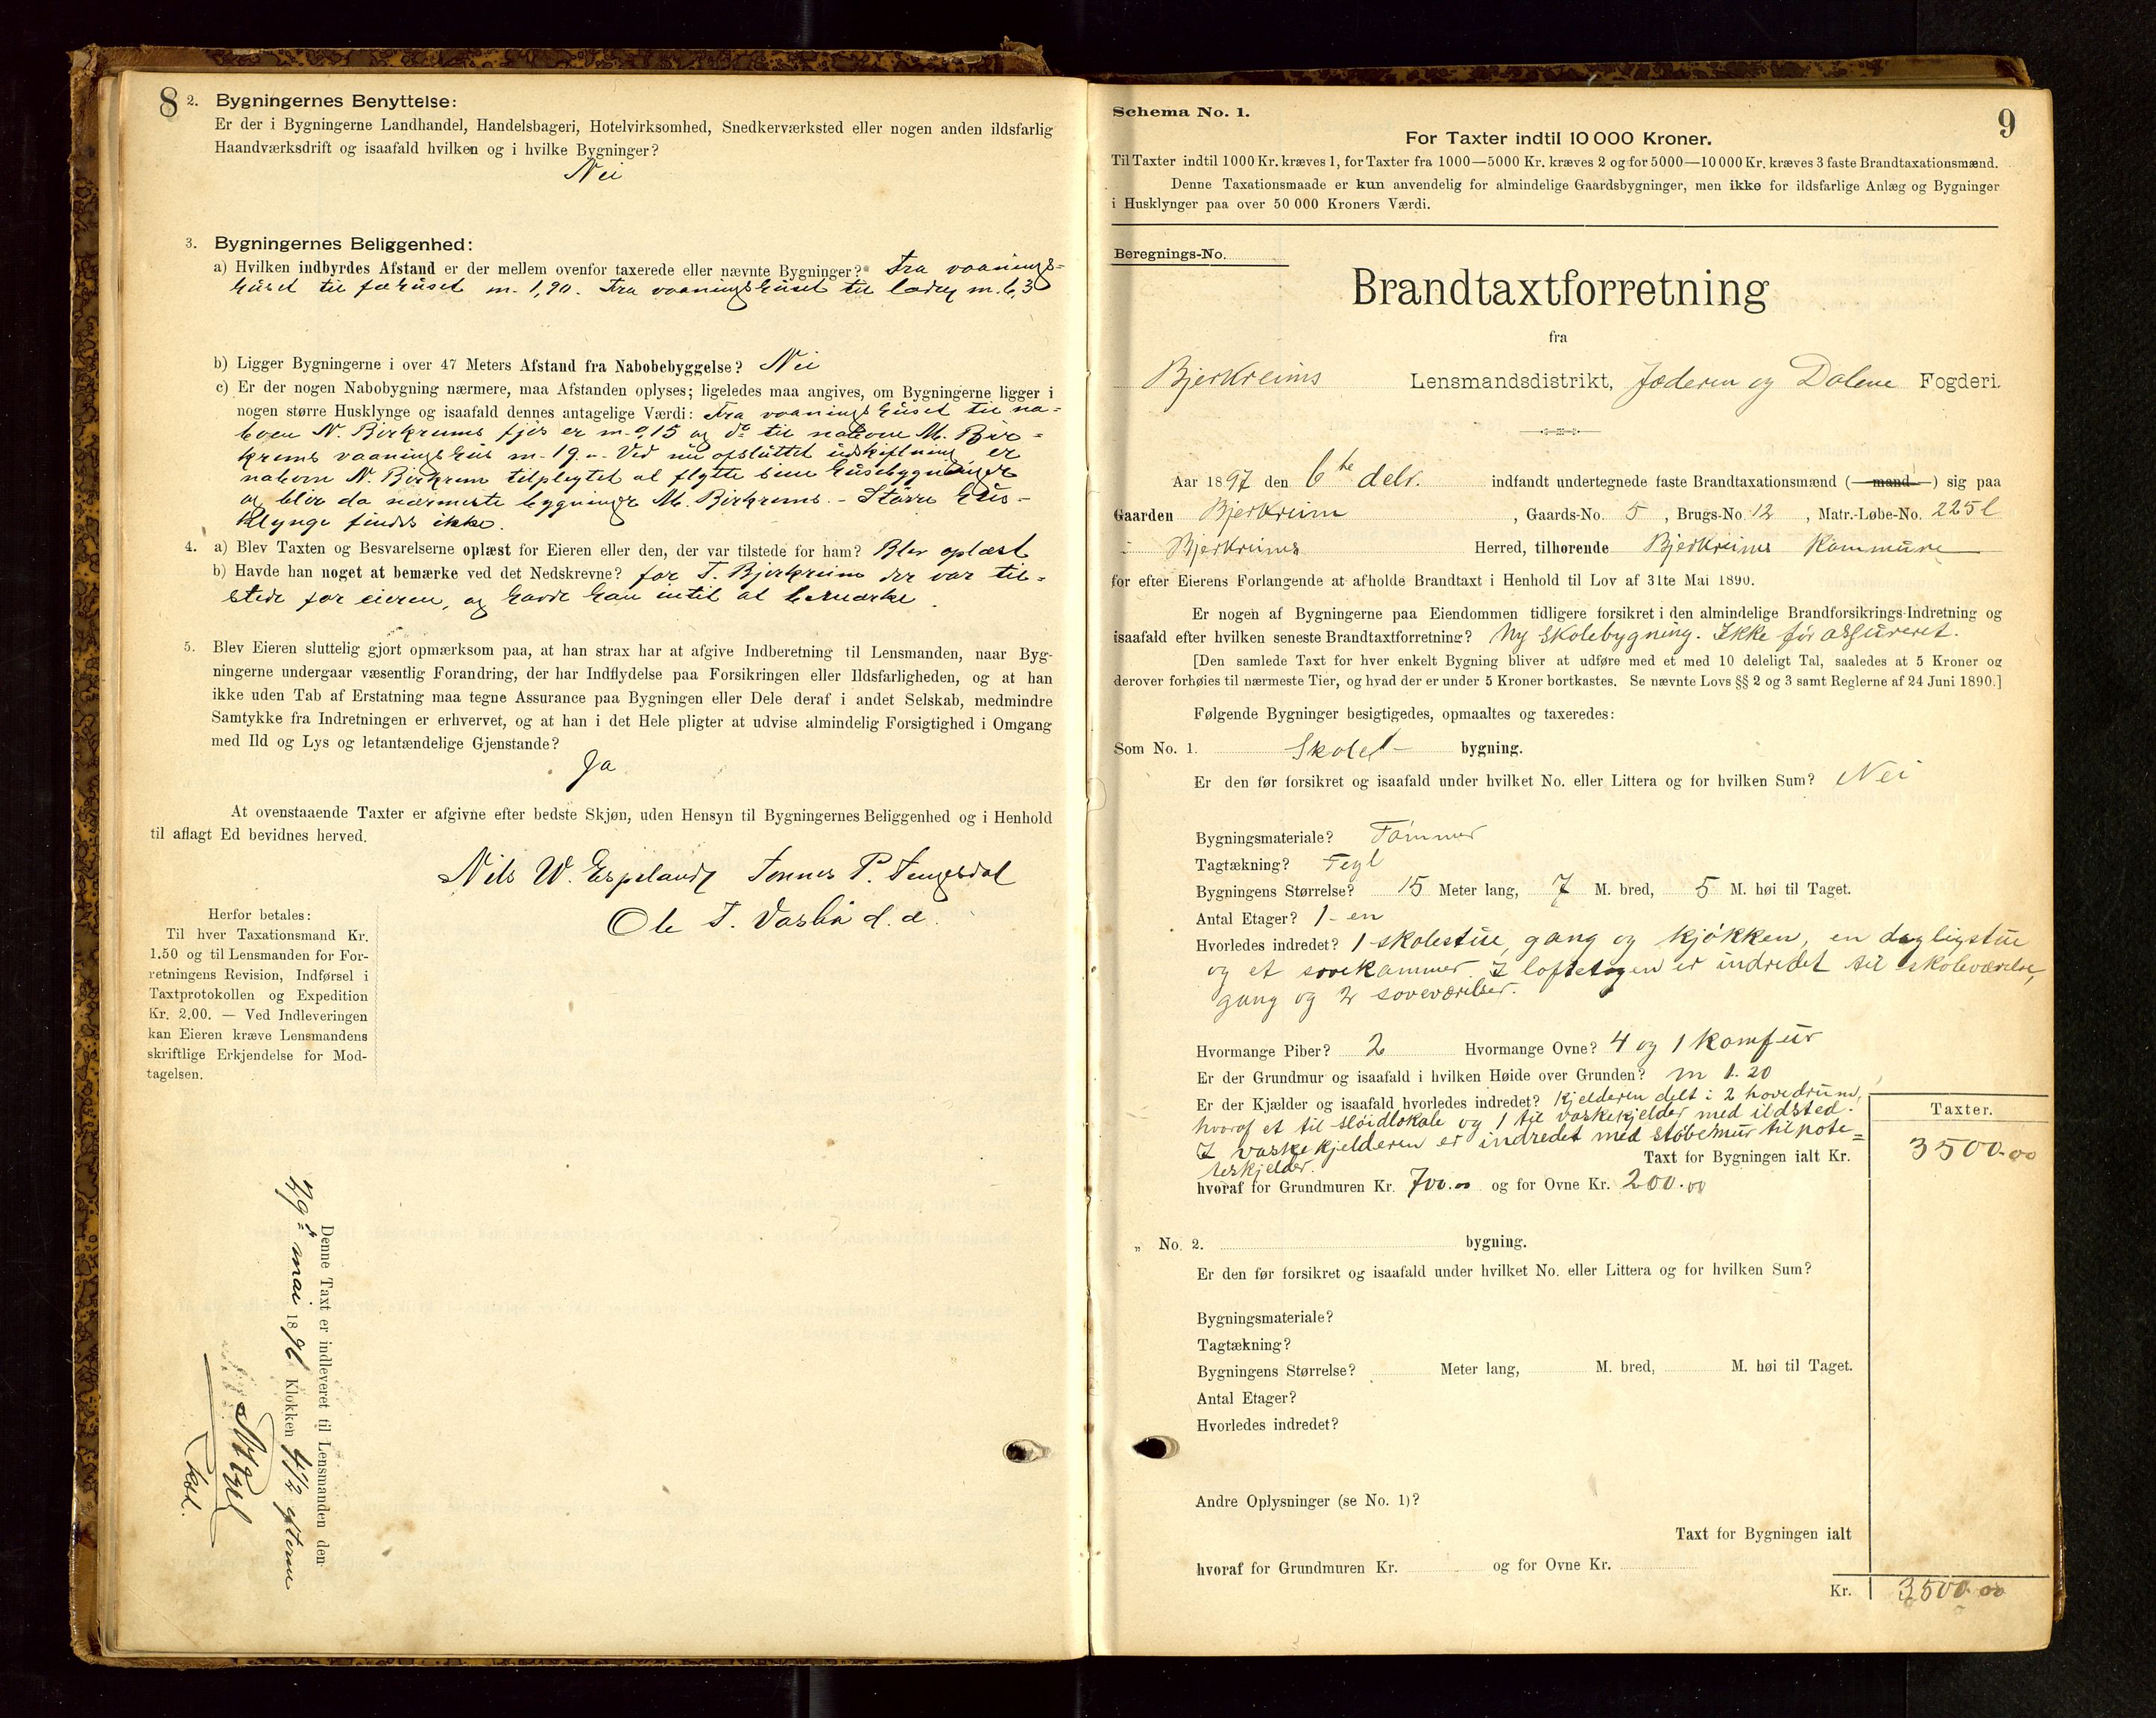 8
2. Bygningernes Benyttelse:
Er der i Bygningerne Landhandel, Handelsbageri, Hotelvirksomhed, Snedkerværksted eller nogen anden ildsfarlig
Haandværksdrift og isaafald hvilken og i hvilke Bygninger?
Nei
3. Bygningernes Beliggenhed:
a) Hvilken indbyrdes Afstand er der mellem ovenfor taxerede eller nævnte Bygninger? Fra vaanings-
huset til fæhuset m. 1,90. Fra vaaningshuset til laden m. 6,3
b) Ligger Bygningerne i over 47 Meters Afstand fra Nabobebyggelse? Nei
c) Er der nogen Nabobygning nærmere, maa Afstanden oplyses; ligeledes maa angives, om Bygningerne ligger i
nogen større Husklynge og isaafald dennes antagelige Værdi: Fra vaaningshuset til na-
boen N. Birkrems fjøs er m. 0,15 og do til naboens M. Bir-
krems vaaningshus m. 19 - Ved nu afsluttet udskiftning er
naboen N. Birkrem tilpligtet at flytte sine husebygninger
og blir da nærmeste bygninger M. Birkrems. - Større hus-
klynge findes ikke.
4. a) Blev Taxten og Besvarelserne oplæst for Eieren eller den, der var tilstede for ham? Blev oplæst
b) Havde han noget at bemærke ved det Nedskrevne? for T. Bjerkreim der var til-
stede for eieren, og havde han intet at bemærke.
5. Blev Eieren sluttelig gjort opmærksom paa, at han strax har at afgive Indberetning til Lensmanden, naar Byg-
ningerne undergaar væsentlig Forandring, der har Indflydelse paa Forsikringen eller Ildsfarligheden, og at han
ikke uden Tab af Erstatning maa tegne Assurance paa Bygningen eller Dele deraf i andet Selskab, medmindre
Samtykke fra Indretningen er erhvervet, og at han i det Hele pligter at udvise almindelig Forsigtighed i Omgang
med Ild og Lys og letantændelige Gjenstande?
Ja
At ovenstaaende Taxter er afgivne efter bedste Skjøn, uden Hensyn til Bygningernes Beliggenhed og i Henhold
til aflagt Ed bevidnes herved.
Nils W. Espeland Tonnes P. Tengesdal
Ole T.
Herfor betales:
Til hver Taxationsmand Kr.
1.50 og til Lensmanden for For-
retningens Revision, Indførsel i
Taxtprotokollen og Expedition
Kr. 2.00. — Ved Indleveringen
kan Eieren kræve Lensmandens
skriftlige Erkjendelse for Mod-
tagelsen.
Denne Taxt er indleveret til Lensmanden den
29de mai 1896 Klokken 4 1/2 efterm
Schema No. 1.
9
For Taxter indtil 10 000 Kroner.
Til Taxter indtil 1000 Kr. kræves 1, for Taxter fra 1000—5000 Kr. kræves 2 og for 5000—10000 Kr. kræves 3 faste Brandtaxationsmænd.
Denne Taxationsmaade er kun anvendelig for almindelige Gaardsbygninger, men ikke for ildsfarlige Anlæg og Bygninger
i Husklynger paa over 50 000 Kroners Værdi.
Beregnings-No.
Brandtaxtforretning
fra
Bjerkreims Lensmandsdistrikt, Jæderen og Dalene Fogderi.
Aar 1897 den 6te debr. indfandt undertegnede faste Brandtaxationsmænd (—mand—) sig paa
Gaarden Bjerkreim, Gaards-No. 5, Brugs-No. 12, Matr.-Løbe-No. 225 l
i Bjerkreims Herred, tilhørende Bjerkreims Kommune
for efter Eierens Forlangende at afholde Brandtaxt i Henhold til Lov af 31te Mai 1890.
Er nogen af Bygningerne paa Eiendommen tidligere forsikret i den almindelige Brandforsikrings-Indretning og
isaafald efter hvilken seneste Brandtaxtforretning? Ny skolebygning. Ikke før assureret.
[Den samlede Taxt for hver enkelt Bygning bliver at udføre med et med 10 deleligt Tal, saaledes at 5 Kroner og
derover forhøies til nærmeste Tier, og hvad der er under 5 Kroner bortkastes. Se nævnte Lovs §§ 2 og 3 samt Reglerne af 24 Juni 1890.]
Følgende Bygninger besigtigedes, opmaaltes og taxeredes:
Som No. 1. Skole- bygning.
Er den før forsikret og isaafald under hvilket No. eller Littera og for hvilken Sum? Nei
Bygningsmateriale? Tømmer
Tagtækning? Tegl
Bygningens Størrelse? 15 Meter lang, 7 M. bred, 5 M. høi til Taget.
Antal Etager? 1 - en
Hvorledes indredet? 1 skolestue, gang og kjøkken, en dagligstue
og et sovekammer. I loftetagen er indredet til skoleværelse,
gang og 2 soveværelser.
Hvormange Piber? 2 Hvormange Ovne? 4 og 1 komfur
Er der Grundmur og isaafald i hvilken Høide over Grunden? m 1.20
Er der Kjælder og isaafald hvorledes indredet? Kjelderen delt i 2 hovedrum,
hvoraf et til sløidlokale og 1 til vaskekjelder med ildsted.
I vaskekjelderen er indredet med støbemur til pote-
teskjelder.
Taxter.
Taxt for Bygningen ialt Kr. 3500.00
hvoraf for Grundmuren Kr. 700.00 og for Ovne Kr. 200.00
„ No. 2. bygning.
Er den før forsikret og isaafald under hvilket No. eller Littera og for hvilken Sum?
Bygningsmateriale?
Tagtækning?
Bygningens Størrelse? Meter lang, M. bred, M. høi til Taget.
Antal Etager?
Hvorledes indredet?
Andre Oplysninger (se No. 1)?
Taxt for Bygningen ialt
hvoraf for Grundmuren Kr. og for Ovne Kr.
Kr. 3500.00